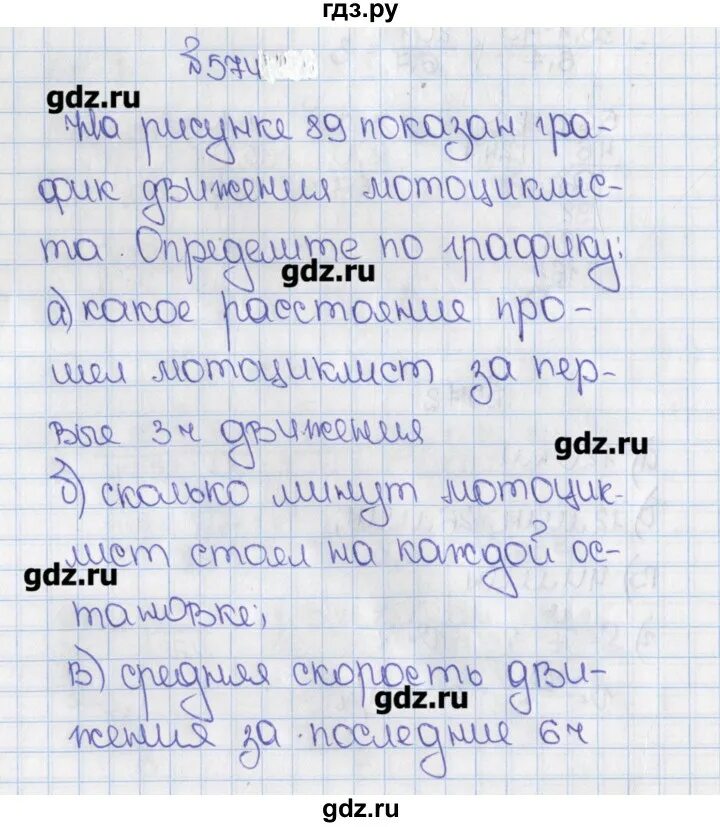 гдз.ру
№574
gdz.ru
На рисунке 89 показан гра-
фик движения мотоциклис-
та. Определите по графику:
gdz.ru
а) какое расстояние про-
шел мотоциклист за пер-
вые 3ч движения
gdz.ru
б) сколько минут мотоцик-
лист стоял на каждой ос-
gdz.ru
тановке;
в) средняя скорость дви-
gdz.ru
жения за последние 6ч
gdz.ru